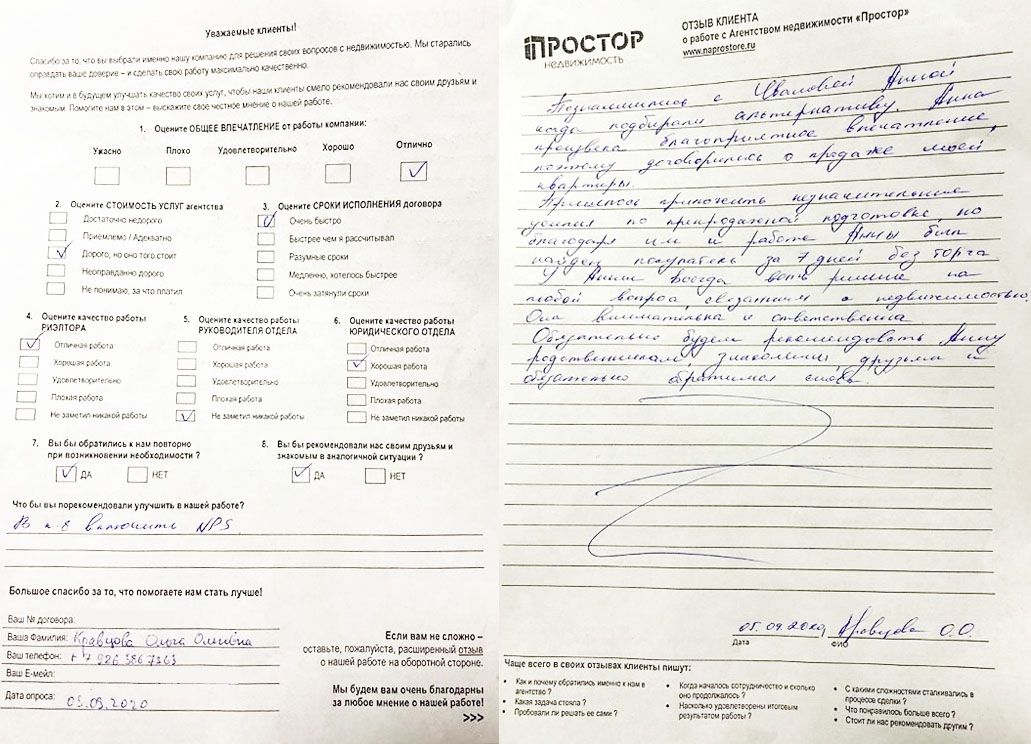 Уважаемые клиенты!
Спасибо за то, что вы выбрали именно нашу компанию для решения своих вопросов с недвижимостью. Мы старались
оправдать ваше доверие – и сделать свою работу максимально качественно.
Мы хотим и в будущем улучшать качество своих услуг, чтобы наши клиенты смело рекомендовали нас своим друзьям и
знакомым. Помогите нам в этом – выскажите свое честное мнение о нашей работе.
1. Оцените ОБЩЕЕ ВПЕЧАТЛЕНИЕ от работы компании:
Ужасно Плохо Удовлетворительно Хорошо Отлично
2. Оцените СТОИМОСТЬ УСЛУГ агентства
Достаточно недорого
Приемлемо / Адекватно
Дорого, но оно того стоит
Неоправданно дорого
Не понимаю, за что платил
3. Оцените СРОКИ ИСПОЛНЕНИЯ договора
Очень быстро
Быстрее чем я рассчитывал
Разумные сроки
Медленно, хотелось быстрее
Очень затянули сроки
4. Оцените качество работы
РИЭЛТОРА
Отличная работа
Хорошая работа
Удовлетворительно
Плохая работа
Не заметил никакой работы
5. Оцените качество работы
РУКОВОДИТЕЛЯ ОТДЕЛА
Отличная работа
Хорошая работа
Удовлетворительно
Плохая работа
Не заметил никакой работы
6. Оцените качество работы
ЮРИДИЧЕСКОГО ОТДЕЛА
Отличная работа
Хорошая работа
Удовлетворительно
Плохая работа
Не заметил никакой работы
7. Вы бы обратились к нам повторно
при возникновении необходимости ?
ДА НЕТ
8. Вы бы рекомендовали нас своим друзьям и
знакомым в аналогичной ситуации ?
ДА НЕТ
Что бы вы порекомендовали улучшить в нашей работе?
В п.8 включить NPS
Большое спасибо за то, что помогаете нам стать лучше!
Ваш № договора:
Ваша Фамилия: Кравцова Ольга Олеговна
Ваш телефон: +7 926 586 7363
Ваш E-мейл:
Дата опроса: 05.09.2020
Если вам не сложно –
оставьте, пожалуйста, расширенный отзыв
о нашей работе на оборотной стороне.
Мы будем вам очень благодарны
за любое мнение о нашей работе!
>>>
ПРОСТОР
НЕДВИЖИМОСТЬ
ОТЗЫВ КЛИЕНТА
о работе с Агентством недвижимости «Простор»
www.naprostore.ru
Познакомились с Анной
когда подбирали альтернативу. Анна
произвела благоприятное впечатление,
поэтому договорились о продаже моей
квартиры.
Пришлось приложить незначительные
усилия по предпродажной подготовке, но
благодаря им и работе Анны был
найден покупатель за 7 дней без торга.
У Анны всегда есть решение на
любой вопрос связанный с недвижимостью.
Она внимательна и ответственна
Обязательно будем рекомендовать Анну
родственникам знакомым друзьям и
обязательно обратимся снова.
05.09.2020, Кравцова О.О.
Дата ФИО
Чаще всего в своих отзывах клиенты пишут:
• Как и почему обратились именно к нам в
агентство ?
• Какая задача стояла ?
• Пробовали ли решать ее сами ?
• Когда началось сотрудничество и сколько
оно продолжалось ?
• Насколько удовлетворены итоговым
результатом работы ?
• С какими сложностями сталкивались в
процессе сделки ?
• Что понравилось больше всего ?
• Стоит ли нас рекомендовать другим ?